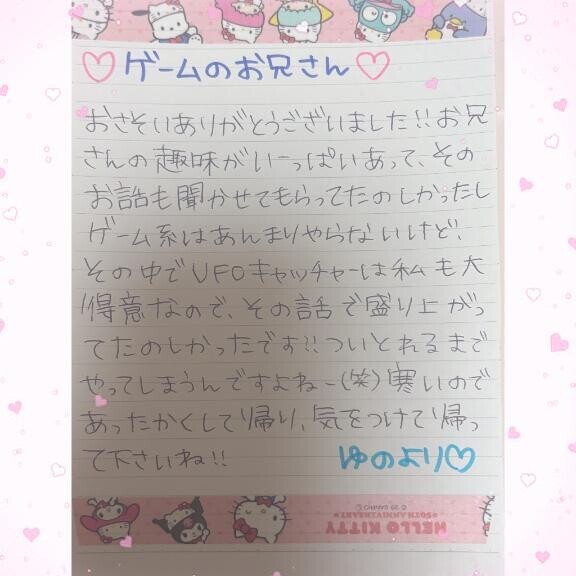 ♡ゲームのお兄さん♡
おさそいありがとうございました!!お兄
さんの趣味がいーっぱいあって、その
お話も聞かせてもらってたのしかったし
ゲーム系はあんまりやらないけど、
その中でUFOキャッチャーは私も大
得意なので、その話で盛り上がっ
てたのしかったです!!ついとれるまで
やってしまうんですよねー(笑)寒いので
あったかくして帰り、気をつけて帰っ
て下さいね!!
ゆのより♡
HELLO KITTY
50TH ANNIVERSARY